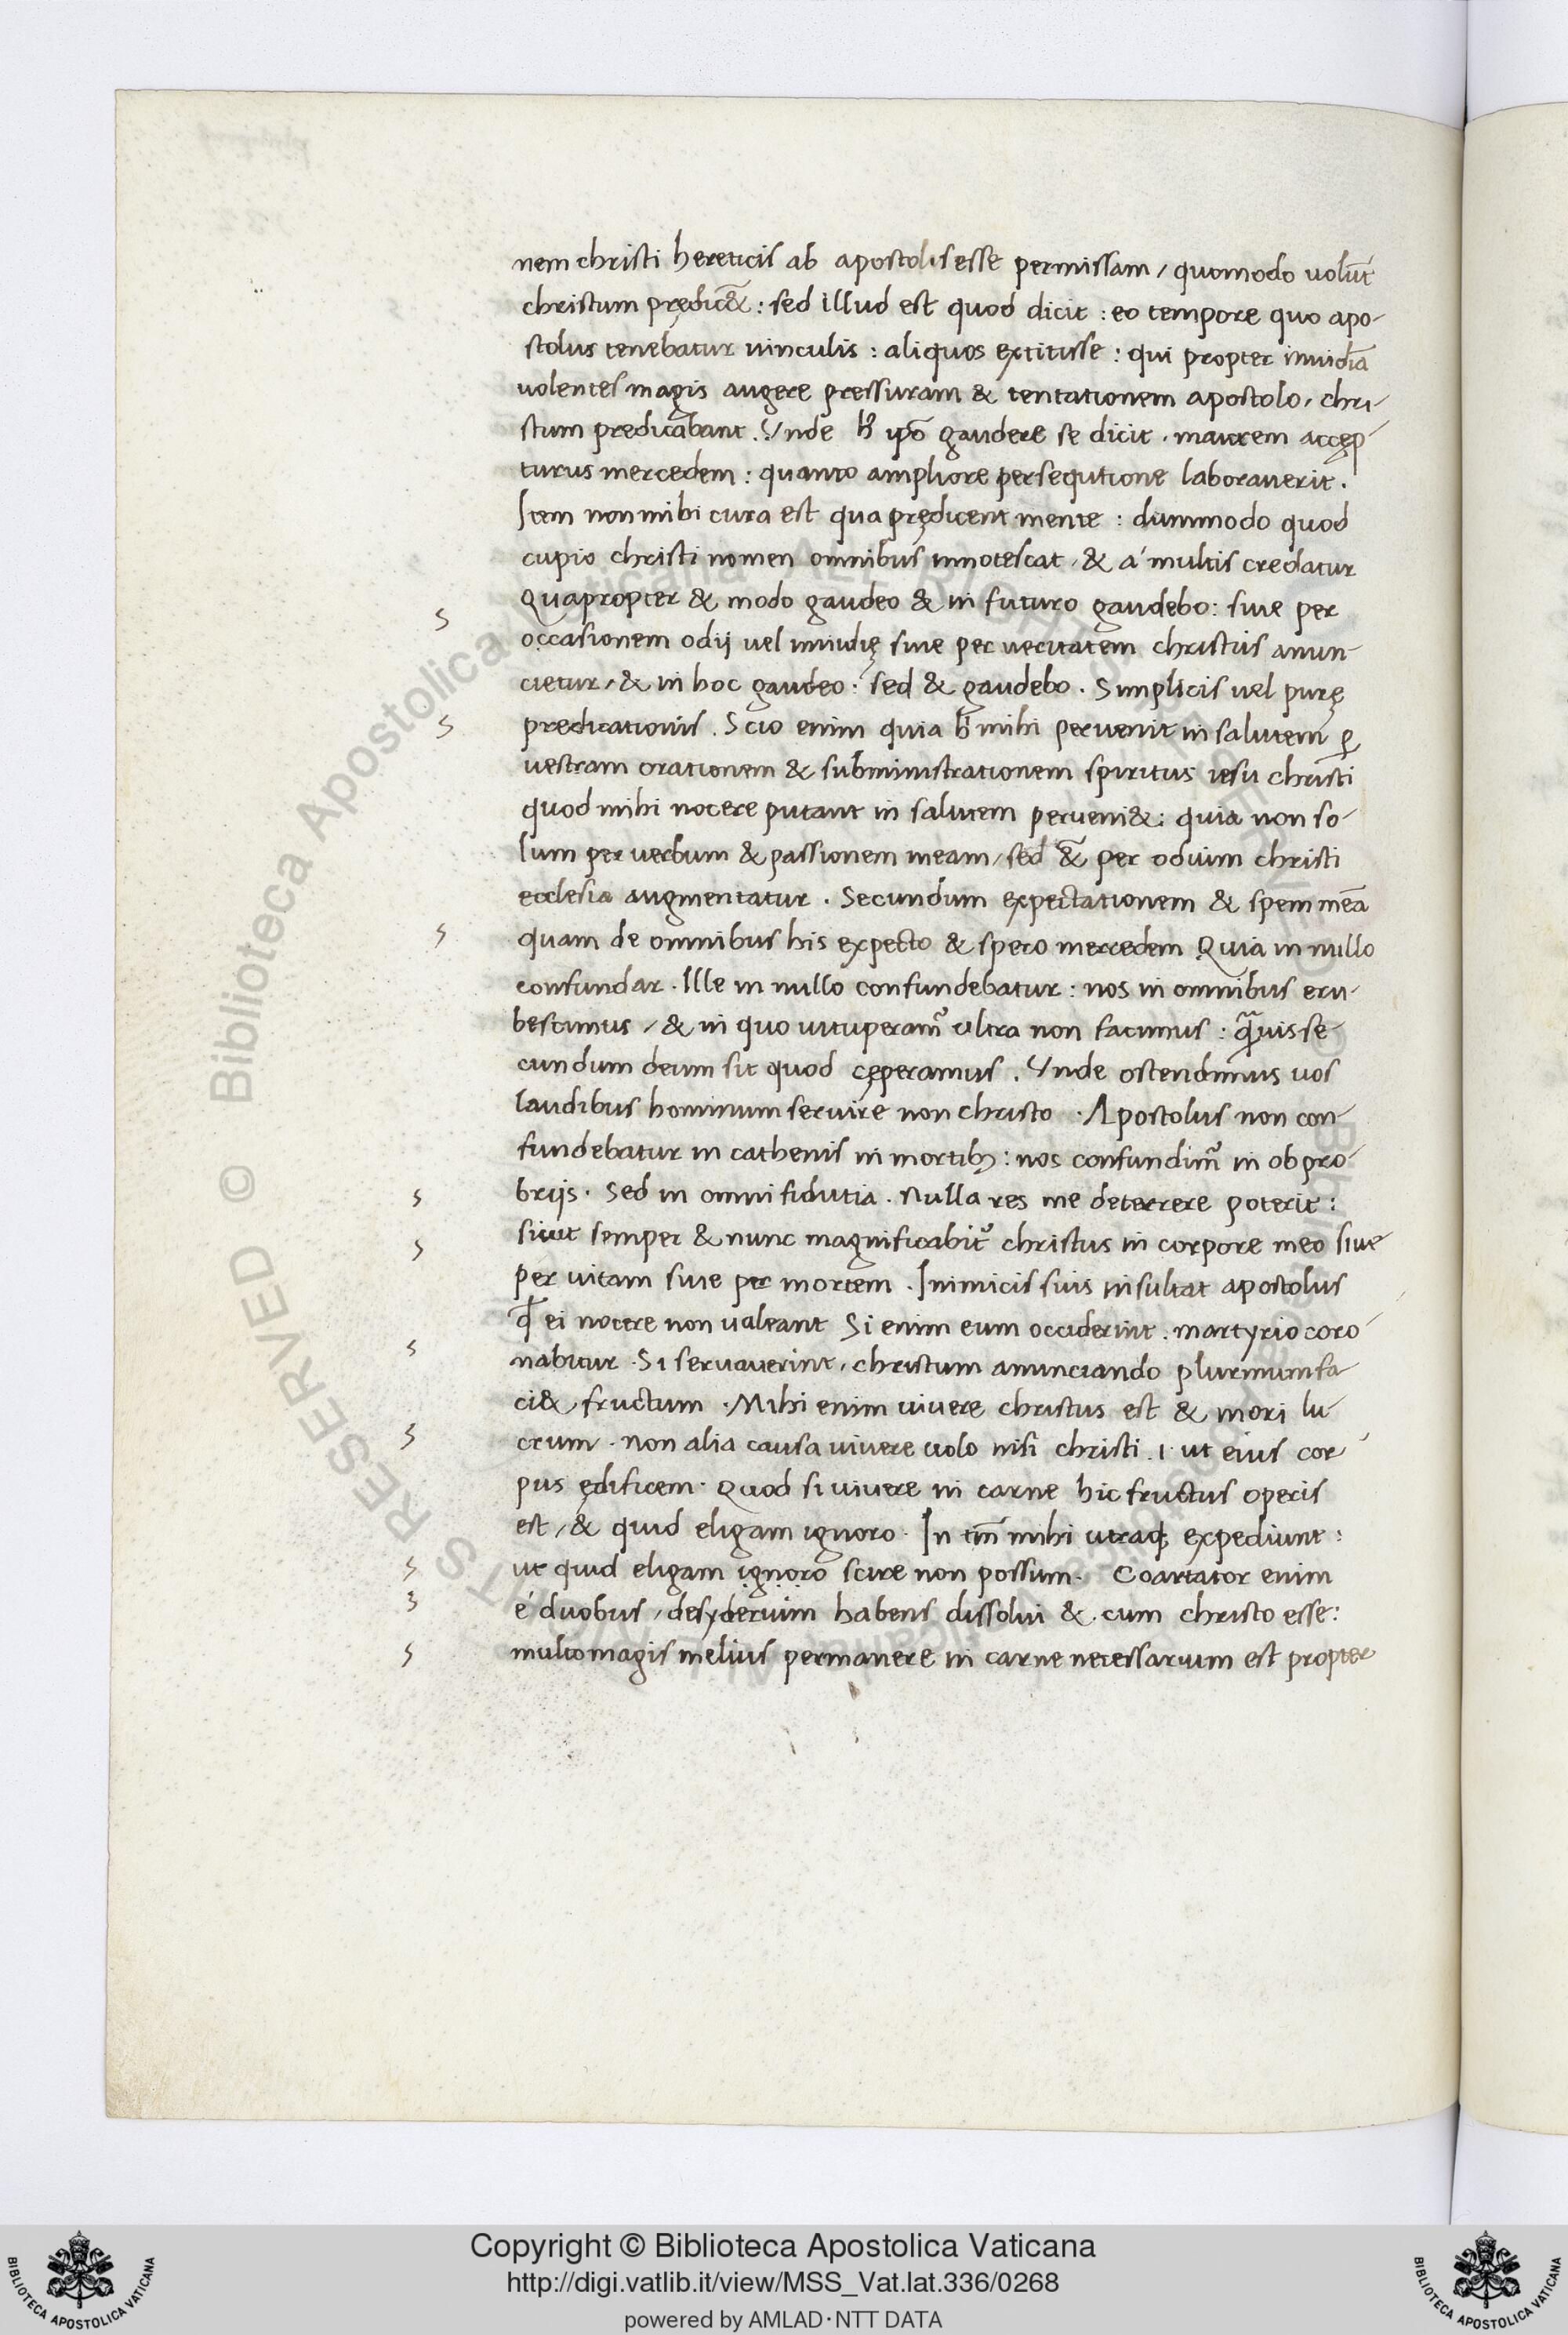 nem christi hereticis ab apostolis esse permissam / quomodo uolūt
christum prędic&̄ : sed illud est quod dicit : eo tempore quo apo-
stolus tenebatur uinculis : aliquos extitisse : qui propter inuidiā
uolentes magis augere pressuram & tentationem apostolo, chri-
stum predicabant. Vnde h̄ ip̄o gaudere se dicit. maiorem accęp-
turus mercedem : quanto ampliore persequtione laborauerit.
Item non mihi cura est qua prędicent mente : dummodo quod
cupio christi nomen omnibus innotescat, & á multis credatur
Quapropter & modo gaudeo & in futuro gaudebo : siue per
occasionem odij uel inuidię siue per ueritatem christus anun-
cietur, & in hoc gaudeo : sed & gaudebo. Simplicis uel purę
predicationis. Scio enim quia h̄ mihi peruenit in salutem ꝑ
uestram orationem & subministrationem spiritus iesu christi
quod mihi nocere putant in salutem perueni& : quia non so-
lum per uerbum & passionem meam, sed &̄ per odium christi
ecclesia augmentatur. Secundum expectationem & spem meā
quam de omnibus his expecto & spero mercedem Quia in nullo
confundar. Ille in nullo confundebatur : nos in omnibus eru-
bescimus, & in quo uituperamꝰ ultra non facimus : q̄uis se-
cundum deum sit quod cęperamus. Vnde ostendimus uos
laudibus hominum seruire non christo. Apostolus non con-
fundebatur in cathenis in mortibꝫ : nos confundimꝰ in obpro-
brijs. Sed in omni fidutia. Nulla res me deterrere poterit :
sicut semper & nunc magnificabit̃ christus in corpore meo siue
per uitam siue per mortem. Inimicis suis insultat apostolus
ꝙ ei nocere non ualeant Si enim eum occiderint. martyrio coro-
nabitur. Si seruauerint, christum anunciando plurimum fa-
ci& fructum. Mihi enim uiuere christus est & mori lu-
crum. non alia causa uiuere uolo nisi christi .i. ut eius cor-
pus ędificem. Quod si uiuere in carne hic fructus operis
est, & quid eligam ignoro. In tm̄ mihi utraqꝫ expediunt :
ut quid eligam ignoro scire non possum. Coartator enim
é duobus, desyderium habens dissolui & cum christo esse :
multo magis melius permanere in carne necessarium est propter
s
s
s
s
s
s
s
s
3
s
© Biblioteca Apostolica Vaticana ALL RIGHTS RESERVED
Copyright © Biblioteca Apostolica Vaticana
http://digi.vatlib.it/view/MSS_Vat.lat.336/0268
powered by AMLAD·NTT DATA
BIBLIOTECA APOSTOLICA VATICANA
BIBLIOTECA APOSTOLICA VATICANA